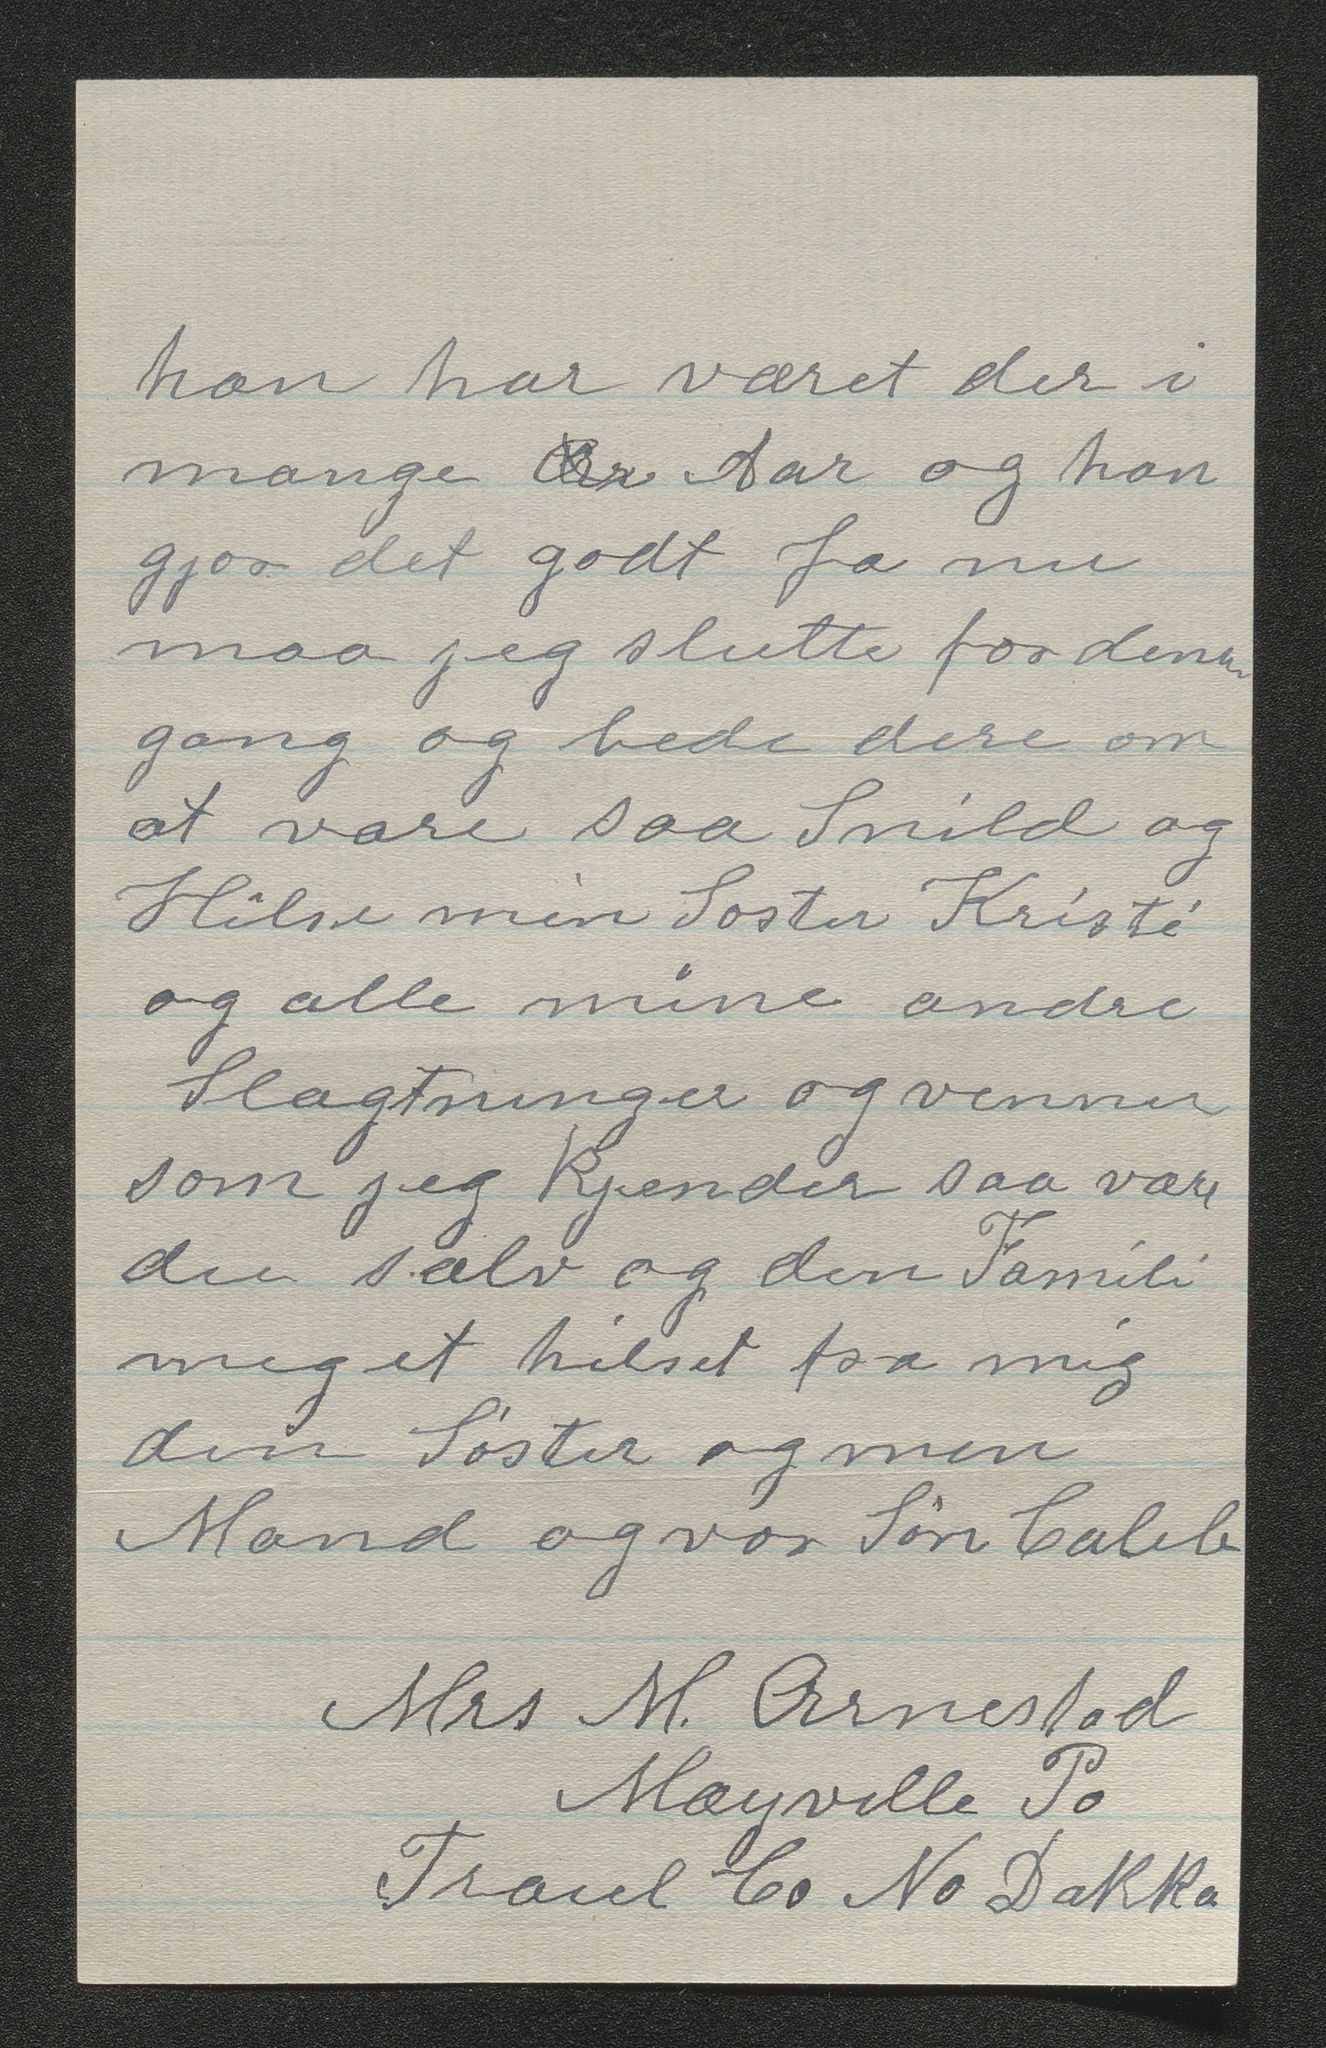 han har været der i
mange Aar og han
gjor det godt Ja nu
maa jeg slutte for denn
gang og bede dere om
at vare saa Snild og
Hilse min Soster Kristi
og alle mine andre
Slagtninger og venner
som jeg Kjender saa være
du sælv og din Famili
meget hilset fra mig
din Søster og min
Mand og vor Søn Caleb
Mrs M. Arnestad
Mayville Po
Traul Co No Dakka